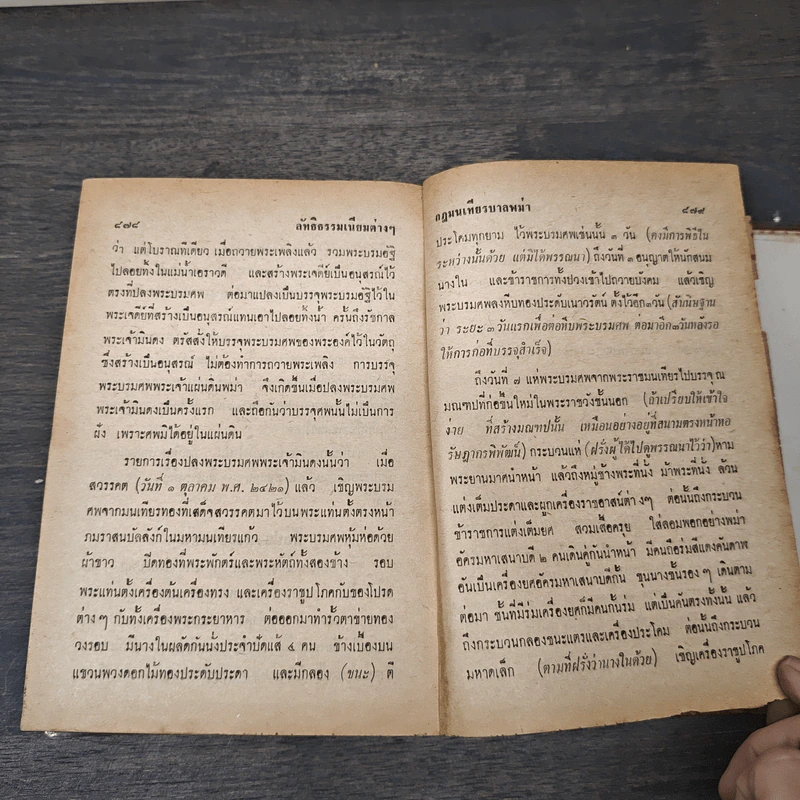 ๔๗๘ ลัทธิธรรมเนียมต่างๆ
ว่า แต่โบราณทีเดียว เมื่อถวายพระเพลิงแล้ว รวมพระบรมอัฐิ
ไปลอยทั้งในแม่น้ำเอราวดี และสร้างพระเจดีย์เป็นอนุสรณ์ไว้
ตรงที่ปลงพระบรมศพ ต่อมาแปลงเป็นบรรจุพระบรมอัฐิไว้ใน
พระเจดีย์ที่สร้างเป็นอนุสรณ์แทนเอาไปลอยทั้งน้ำ ครั้นถึงรัชกาล
พระเจ้ามินดง ตรัสสั่งให้บรรจุพระบรมศพของพระองค์ไว้ในวัตถุ
ซึ่งสร้างเป็นอนุสรณ์ ไม่ต้องทำการถวายพระเพลิง การบรรจุ
พระบรมศพพระเจ้าแผ่นดินพม่า จึงเกิดขึ้นเมื่อปลงพระบรมศพ
พระเจ้ามินดงเป็นครั้งแรก และถือกันว่าบรรจุศพนั้นไม่เป็นการ
ฝัง เพราะศพมิได้อยู่ในแผ่นดิน
รายการเรื่องปลงพระบรมศพพระเจ้ามินดงนั้นว่า เมื่อ
สวรรคต (วันที่ ๑ ตุลาคม พ.ศ. ๒๔๒๑) แล้ว เชิญพระบรม
ศพจากมนเทียรทองที่เสด็จสวรรคตมาไว้บนพระแท่นตั้งตรงหน้า
ภมราสนบัลลังก์ในมหามนเทียรแก้ว พระบรมศพหุ้มห่อด้วย
ผ้าขาว ปิดทองที่พระพักตร์และพระหัตถ์ทั้งสองข้าง รอบ
พระแท่นตั้งเครื่องต้นเครื่องทรง และเครื่องราชูปโภคกับของโปรด
ต่างๆ กับทั้งเครื่องพระกระยาหาร ต่อออกมาทำรั้วตาข่ายทอง
วงรอบ มีนางในผลัดกันนั่งประจำปัดแส้ ๔ คน ข้างเบื้องบน
แขวนพวงดอกไม้ทองประดับประดา และมีกลอง (ขนะ) ตี
กฎมนเทียรบาลพม่า ๔๗๙
ประโคมทุกยาม ไว้พระบรมศพเช่นนั้น ๓ วัน (คงมีการพิธีใน
ระหว่างนั้นด้วย แต่มิได้พรรณนา) ถึงวันที่ ๓ อนุญาตให้นักสนม
นางใน และข้าราชการทั้งปวงเข้าไปถวายบังคม แล้วเชิญ
พระบรมศพลงหีบทองประดับเนาวรัตน์ ตั้งไว้อีก๓วัน (สันนิษฐาน
ว่า ระยะ ๓ วันแรกเพื่อต่อหีบพระบรมศพ ต่อมาอีก๓วันหลังรอ
ให้การก่อที่บรรจุสำเร็จ)
ถึงวันที่ ๗ แห่พระบรมศพจากพระราชมนเทียรไปบรรจุ ณ
มณฑปที่ก่อขึ้นใหม่ในพระราชวังชั้นนอก (ถ้าเปรียบให้เข้าใจ
ง่าย ที่สร้างมณฑปนั้น เหมือนอย่างอยู่ที่สนามตรงหน้าหอ
รัษฎากรพิพัฒน์) กระบวนแห่ (ฝรั่งผู้ได้ไปดูพรรณนาไว้ว่า)หาม
พระยานมาศนำหน้า แล้วถึงหมู่ช้างพระที่นั่ง ม้าพระที่นั่ง ล้วน
แต่งเต็มประดาและผูกเครื่องราชอาสน์ต่างๆ ต่อนั้นถึงกระบวน
ข้าราชการแต่งเต็มยศ สวมเสื้อครุย ใส่ลอมพอกอย่างพม่า
อัครมหาเสนาบดี ๒ คนเดินคู่กันนำหน้า มีคนถือร่มสีแดงคันดาพ
อันเป็นเครื่องยศอัครมหาเสนาบดีกั้น ขุนนางชั้นรองๆ เดินตาม
ต่อมา ชั้นที่มีร่มเครื่องยศก็มีคนกั้นร่ม แต่เป็นคันตรงทั้งนั้น แล้ว
ถึงกระบวนกลองชนะแตรและเครื่องประโคม ต่อนั้นถึงกระบวน
มหาดเล็ก (ตามที่ฝรั่งว่านางในด้วย) เชิญเครื่องราชูปโภค